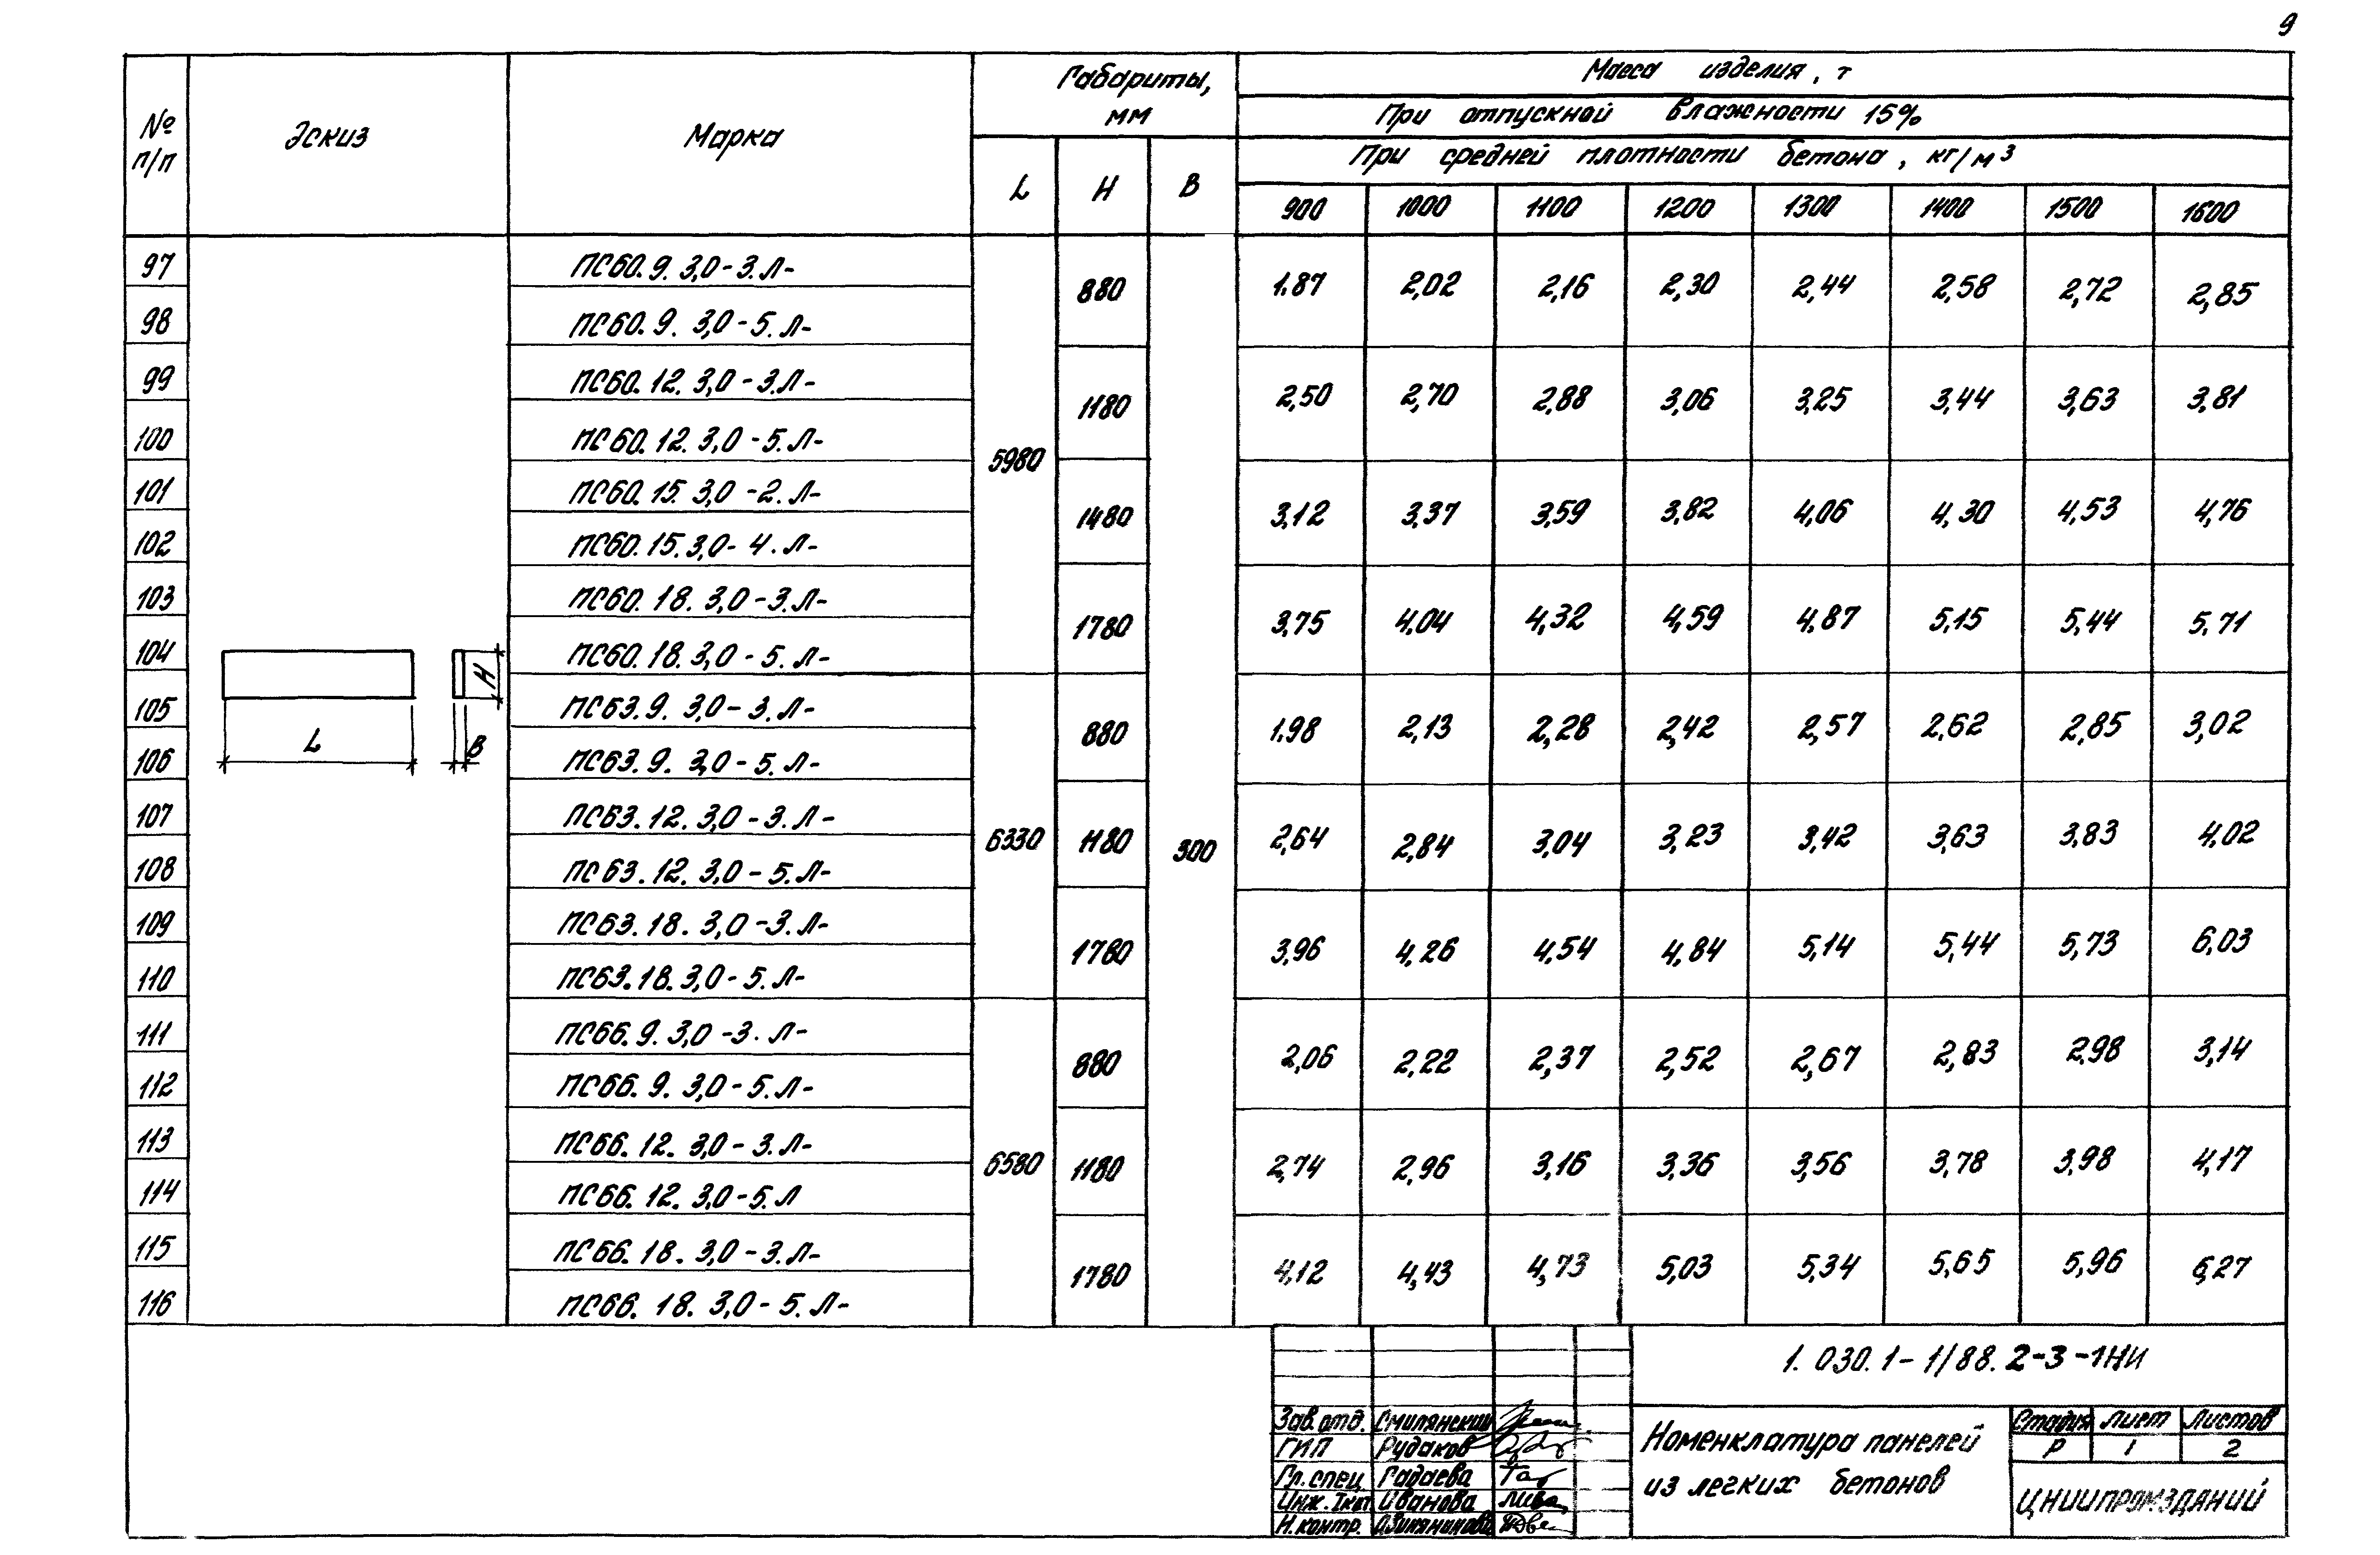 9
№ п/п Эскиз Марка Габариты, мм Масса изделия, т
При отпускной влажности 15%
При средней плотности бетона, кг/м³
L H B 900 1000 1100 1200 1300 1400 1500 1600
97 ПС60.9.3,0-3.Л- 5980 880 300 1.87 2,02 2,16 2,30 2,44 2,58 2,72 2,85
98 ПС60.9.3,0-5.Л-
99 ПС60.12.3,0-3.Л- 1180 2,50 2,70 2,88 3,06 3,25 3,44 3,63 3,81
100 ПС60.12.3,0-5.Л-
101 ПС60.15.3,0-2.Л- 1480 3,12 3,37 3,59 3,82 4,06 4,30 4,53 4,76
102 ПС60.15.3,0-4.Л-
103 ПС60.18.3,0-3.Л- 1780 3,75 4,04 4,32 4,59 4,87 5,15 5,44 5,71
104 ПС60.18.3,0-5.Л-
105 ПС63.9.3,0-3.Л- 6330 880 1.98 2,13 2,28 2,42 2,57 2.62 2,85 3,02
106 ПС63.9.3,0-5.Л-
107 ПС63.12.3,0-3.Л- 1180 2,64 2,84 3,04 3,23 3,42 3,63 3,83 4,02
108 ПС63.12.3,0-5.Л-
109 ПС63.18.3,0-3.Л- 1780 3,96 4,26 4,54 4,84 5,14 5,44 5,73 6,03
110 ПС63.18.3,0-5.Л-
111 ПС66.9.3,0-3.Л- 6580 880 2,06 2,22 2,37 2,52 2,67 2,83 2,98 3,14
112 ПС66.9.3,0-5.Л-
113 ПС66.12.3,0-3.Л- 1180 2,74 2,96 3,16 3,36 3,56 3,78 3,98 4,17
114 ПС66.12.3,0-5.Л
115 ПС66.18.3,0-3.Л- 1780 4,12 4,43 4,73 5,03 5,34 5,65 5,96 6,27
116 ПС66.18.3,0-5.Л-
L B H
1.030.1-1/88.2-3-1НИ
Зав.отд. Смилянский
ГИП Рудаков
Гл.спец Гадаева
Инж.Iкат Иванова
Н.контр.
Номенклатура панелей
из легких бетонов
Стадия Лист Листов
Р 1 2
ЦНИИПРОМЗДАНИЙ